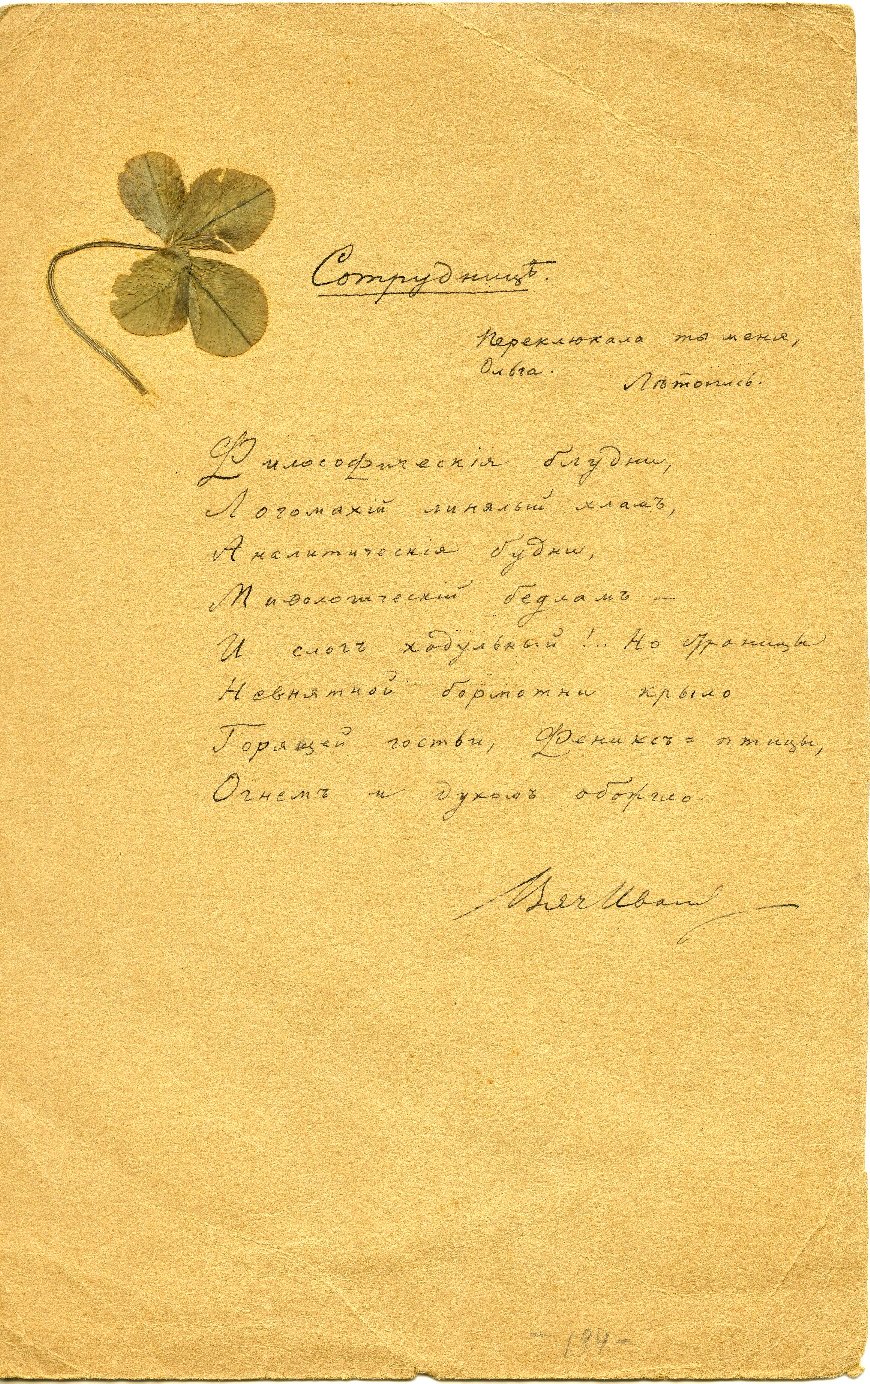 Сотрудницѣ.
Переклюкала ты меня,
Ольга.
Лѣтопись.
Философическія блудни,
Логомахій линялый хламъ,
Аналитическія будни,
Миѳологическій бедламъ —
И слогъ ходульный!.. Но страницы
Невнятной бормотни крыло
Горящей гостьи, Фениксъ-птицы,
Огнемъ и духомъ обожгло.
Вяч Иванов
- 194 -